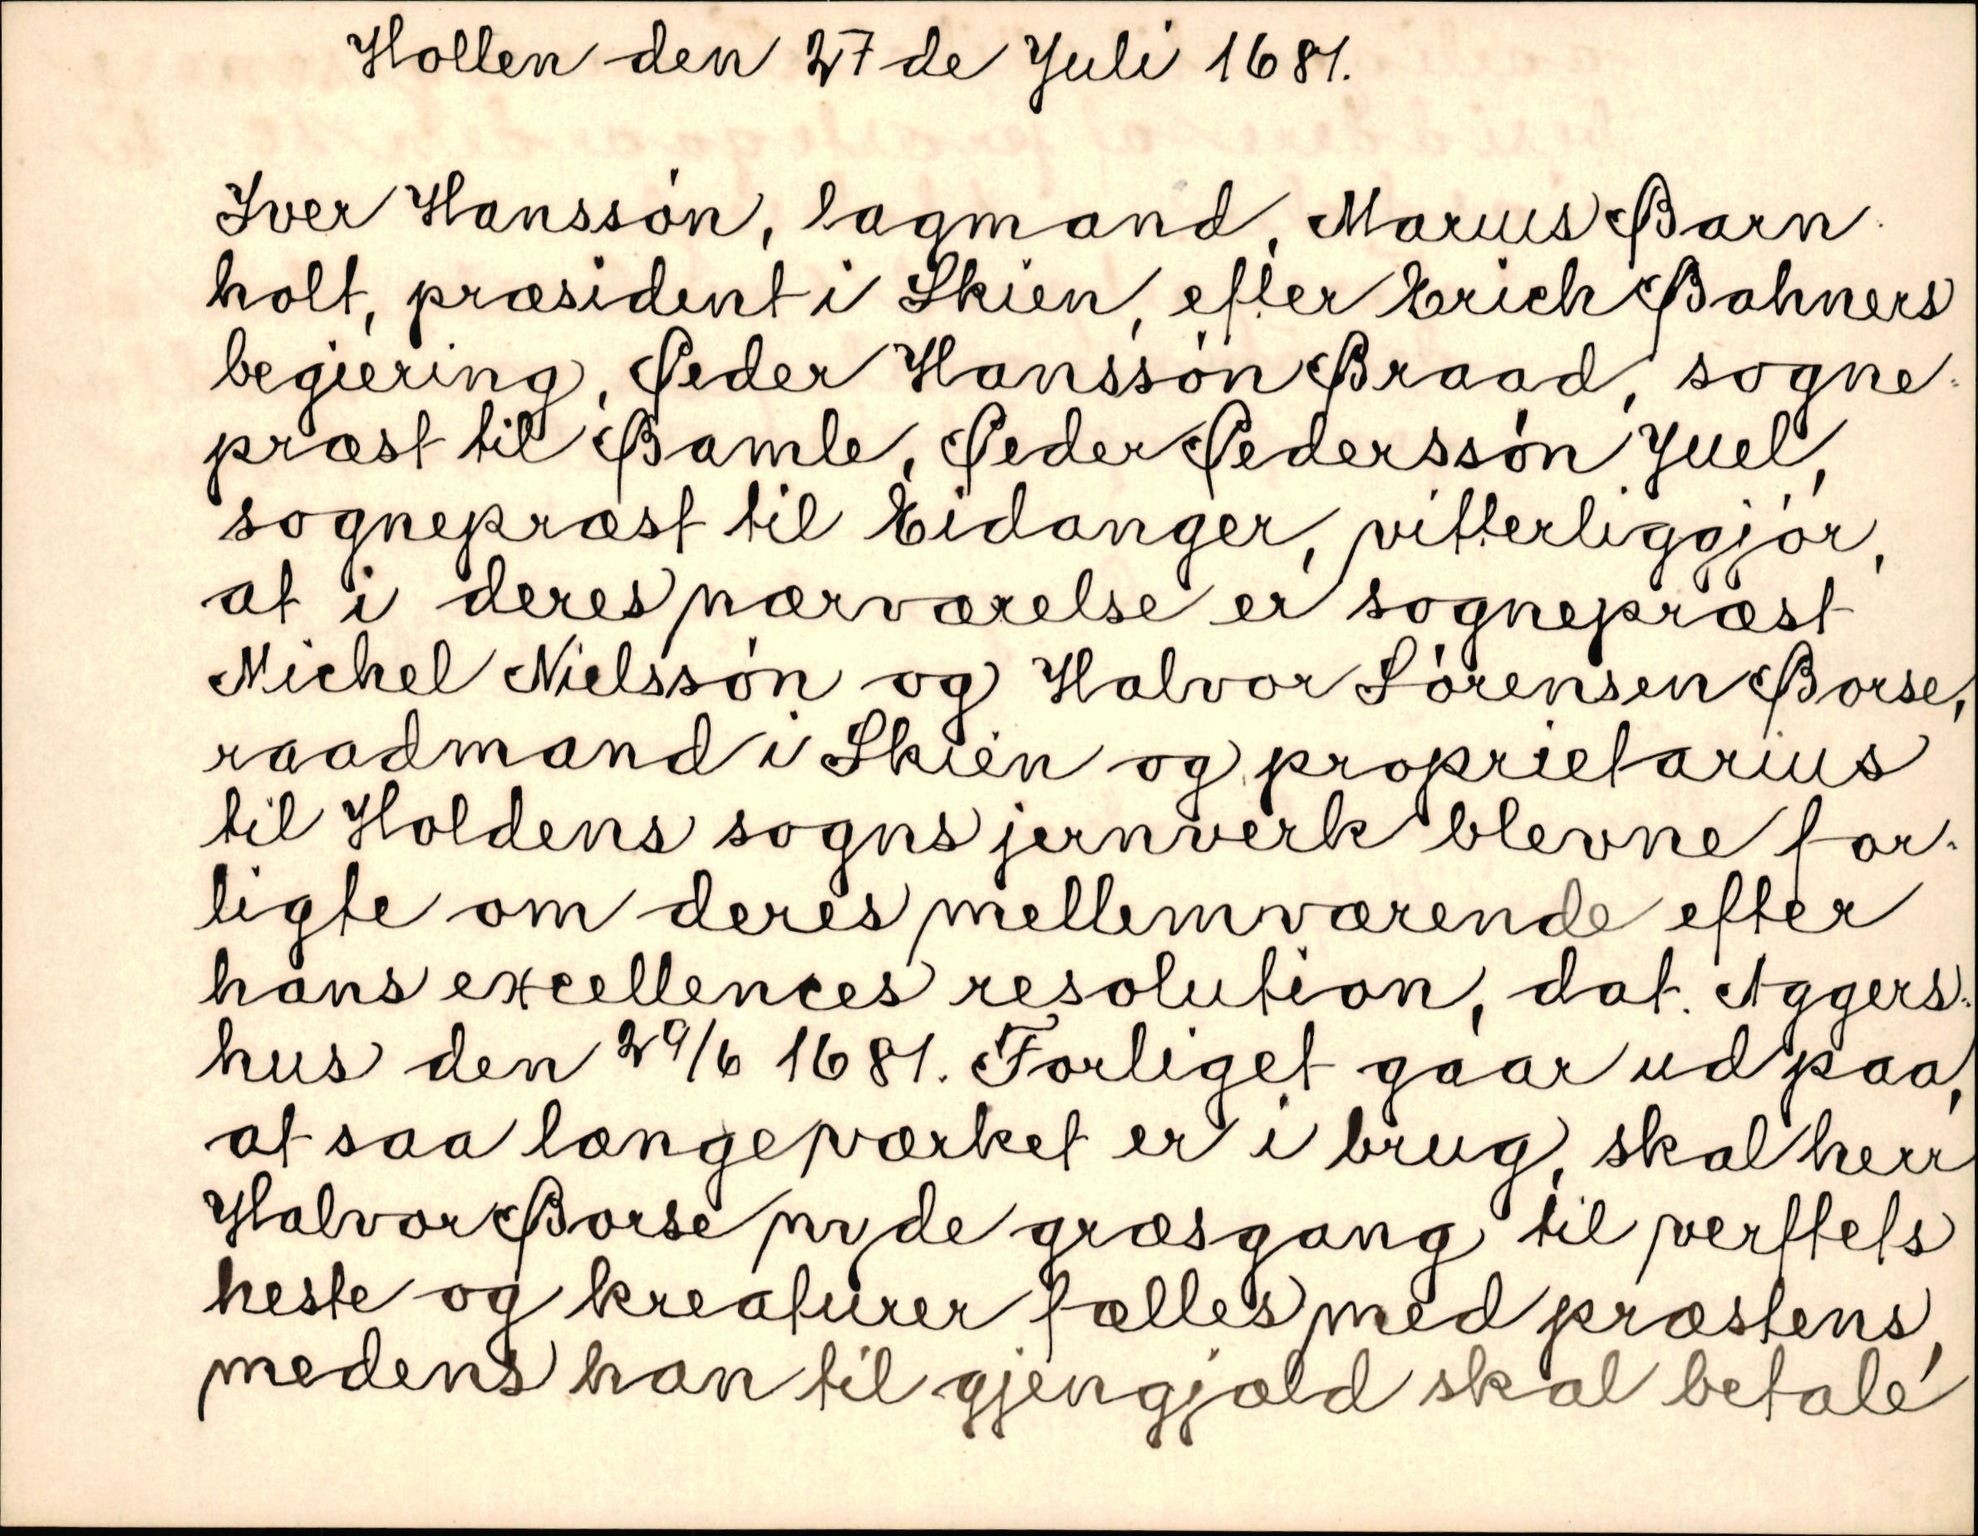 Hollen den 27de Juli 1681.
Iver Hanssøn, lagmand, Marius Barn-
holt, præsident i Skien, efter Erich Bahners
begiering, Peder Hanssøn Braad, sogne-
præst til Bamle, Peder Pederssøn Juel,
sognepræst til Eidanger, vitterliggjør,
at i deres nærværelse er sognepræst
Michel Nielssøn og Halvor Sørensen Borse,
raadmand i Skien og proprietarius
til Holdens sogns jernverk blevne for-
ligte om deres mellemværende efter
hans excellences resolution, dat. Aggers-
hus den 29/6 1681. Forliget gaar ud paa,
at saa længe værket er i brug, skal herr
Halvor Borse nyde græsgang til verftets
heste og kreaturer fælles med præstens,
medens han til gjengjæld skal betale